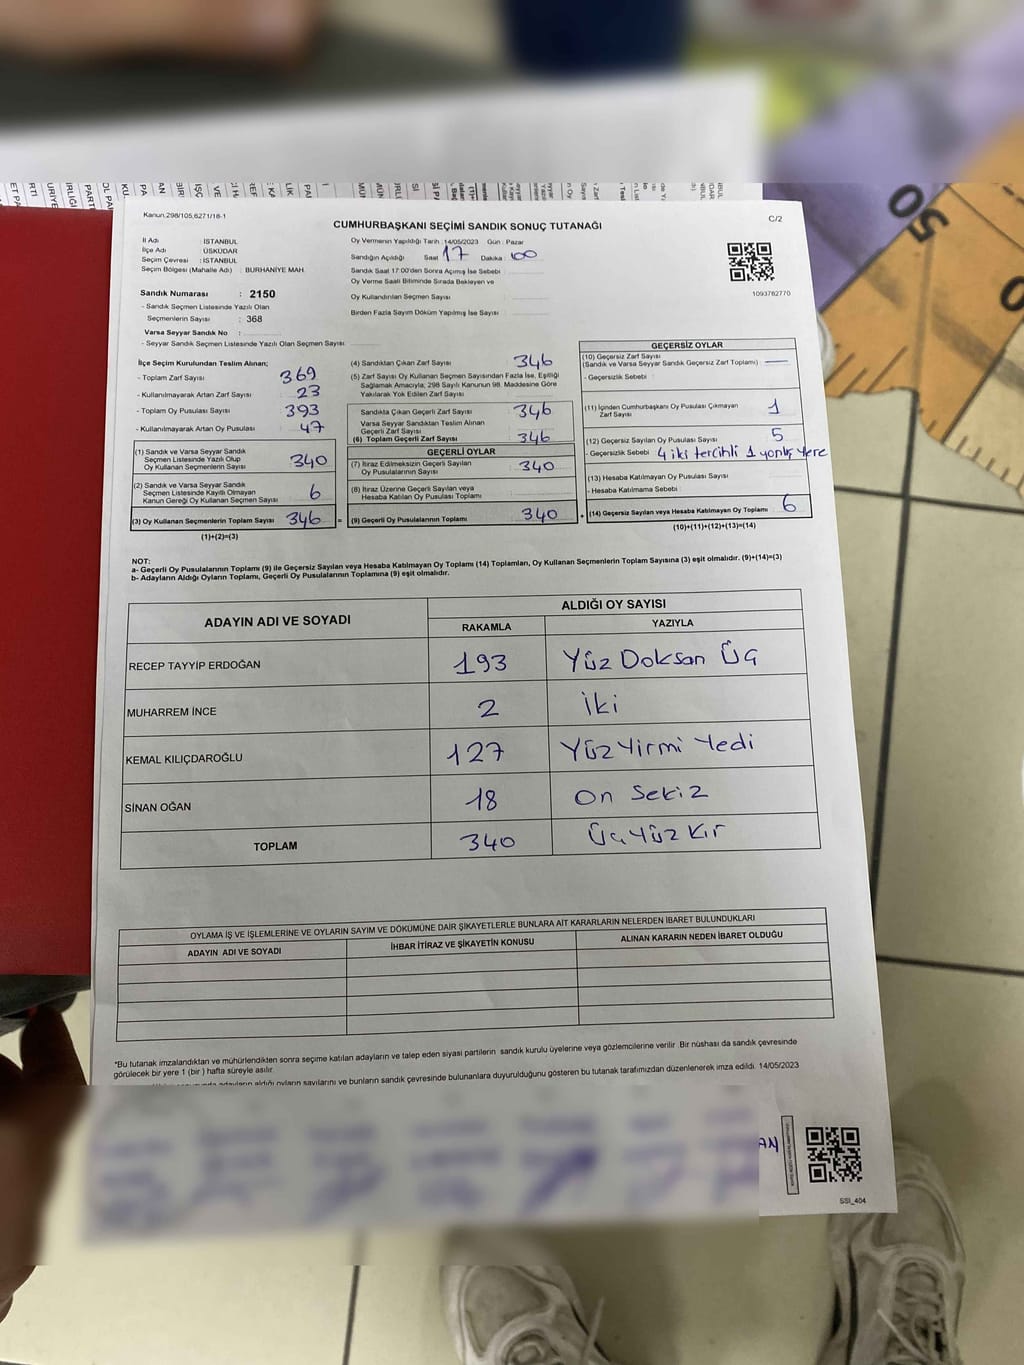 Kanun,298/105,6271/18-1
C/2
CUMHURBAŞKANI SEÇİMİ SANDIK SONUÇ TUTANAĞI
İl Adı : İSTANBUL
İlçe Adı : ÜSKÜDAR
Seçim Çevresi : İSTANBUL
Seçim Bölgesi (Mahalle Adı) : BURHANİYE MAH.
Sandık Numarası : 2150
- Sandık Seçmen Listesinde Yazılı Olan
Seçmenlerin Sayısı : 368
Varsa Seyyar Sandık No :
- Seyyar Sandık Seçmen Listesinde Yazılı Olan Seçmen Sayısı:
Oy Vermenin Yapıldığı Tarih :14/05/2023 Gün : Pazar
Sandığın Açıldığı Saat : 17 Dakika : 00
Sandık Saat 17:00'den Sonra Açımış İse Sebebi :
Oy Verme Saati Bitiminde Sırada Bekleyen ve
Oy Kullandırılan Seçmen Sayısı :
Birden Fazla Sayım Döküm Yapılmış İse Sayısı :
1093782770
İlçe Seçim Kurulundan Teslim Alınan;
- Toplam Zarf Sayısı : 369
- Kullanılmayarak Artan Zarf Sayısı : 23
- Toplam Oy Pusulası Sayısı : 393
- Kullanılmayarak Artan Oy Pusulası : 47
(1) Sandık ve Varsa Seyyar Sandık
Seçmen Listesinde Yazılı Olup
Oy Kullanan Seçmenlerin Sayısı : 340
(2) Sandık ve Varsa Seyyar Sandık
Seçmen Listesinde Kayıtlı Olmayan
Kanun Gereği Oy Kullanan Seçmen Sayısı : 6
(3) Oy Kullanan Seçmenlerin Toplam Sayısı : 346 =
(1)+(2)=(3)
(4) Sandıktan Çıkan Zarf Sayısı : 346
(5) Zarf Sayısı Oy Kullanan Seçmen Sayısından Fazla İse, Eşitliği
Sağlamak Amacıyla; 298 Sayılı Kanunun 98. Maddesine Göre
Yakılarak Yok Edilen Zarf Sayısı :
Sandıkta Çıkan Geçerli Zarf Sayısı : 346
Varsa Seyyar Sandıktan Teslim Alınan
Geçerli Zarf Sayısı :
(6) Toplam Geçerli Zarf Sayısı : 346
GEÇERLİ OYLAR
(7) İtiraz Edilmeksizin Geçerli Sayılan
Oy Pusulalarının Sayısı : 340
(8) İtiraz Üzerine Geçerli Sayılan veya
Hesaba Katılan Oy Pusulası Toplamı :
(9) Geçerli Oy Pusulalarının Toplamı : 340 +
GEÇERSİZ OYLAR
(10) Geçersiz Zarf Sayısı
(Sandık ve Varsa Seyyar Sandık Geçersiz Zarf Toplamı) : —
- Geçersizlik Sebebi :
(11) İçinden Cumhurbaşkanı Oy Pusulası Çıkmayan
Zarf Sayısı : 1
(12) Geçersiz Sayılan Oy Pusulası Sayısı : 5
- Geçersizlik Sebebi : 4 iki tercihli 1 yanlış yere
(13) Hesaba Katılmayan Oy Pusulası Sayısı :
- Hesaba Katılmama Sebebi :
(14) Geçersiz Sayılan veya Hesaba Katılmayan Oy Toplamı : 6
(10)+(11)+(12)+(13)=(14)
NOT:
a- Geçerli Oy Pusulalarının Toplamı (9) ile Geçersiz Sayılan veya Hesaba Katılmayan Oy Toplamı (14) Toplamları, Oy Kullanan Seçmenlerin Toplam Sayısına (3) eşit olmalıdır. (9)+(14)=(3)
b- Adayların Aldığı Oyların Toplamı, Geçerli Oy Pusulalarının Toplamına (9) eşit olmalıdır.
ADAYIN ADI VE SOYADI
ALDIĞI OY SAYISI
RAKAMLA YAZIYLA
RECEP TAYYİP ERDOĞAN 193 Yüz Doksan Üç
MUHARREM İNCE 2 İki
KEMAL KILIÇDAROĞLU 127 Yüz Yirmi Yedi
SİNAN OĞAN 18 On Sekiz
TOPLAM 340 Üç Yüz Kır
OYLAMA İŞ VE İŞLEMLERİNE VE OYLARIN SAYIM VE DÖKÜMÜNE DAİR ŞİKAYETLERLE BUNLARA AİT KARARLARIN NELERDEN İBARET BULUNDUKLARI
ADAYIN ADI VE SOYADI İHBAR İTİRAZ VE ŞİKAYETİN KONUSU ALINAN KARARIN NEDEN İBARET OLDUĞU
*Bu tutanak imzalandıktan ve mühürlendikten sonra seçime katılan adayların ve talep eden siyasi partilerin sandık kurulu üyelerine veya gözlemcilerine verilir .Bir nüshası da sandık çevresinde
görülecek bir yere 1 (bir ) hafta süreyle asılır.
adayların aldığı oyların sayılarını ve bunların sandık çevresinde bulunanlara duyurulduğunu gösteren bu tutanak tarafımızdan düzenlenerek imza edildi. 14/05/2023
AN
SSI_404
50